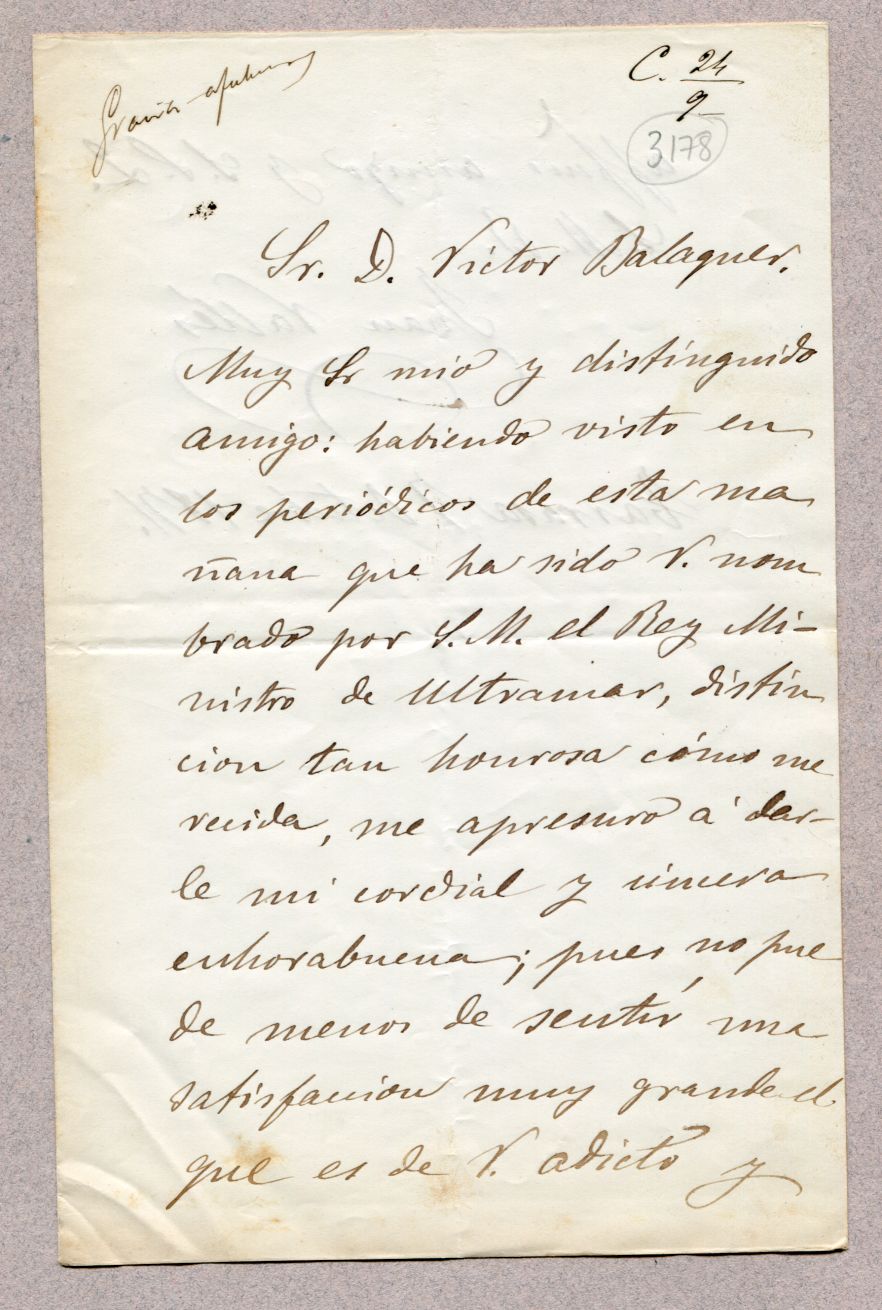 C. 24
9
3178
Sr. D. Víctor Balaguer.
Muy Sr mio y distinguido
amigo: habiendo visto en
los periódicos de esta ma
ñana que ha sido V. nom
brado por S. M. el Rey Mi-
nistro de Ultramar, distin
cion tan honrosa cómo me
recida, me apresuro á dar-
le mi cordial y sincera
enhorabuena; pues no pue
de menos de sentir una
satisfaccion muy grande el
que es de V. adicto y